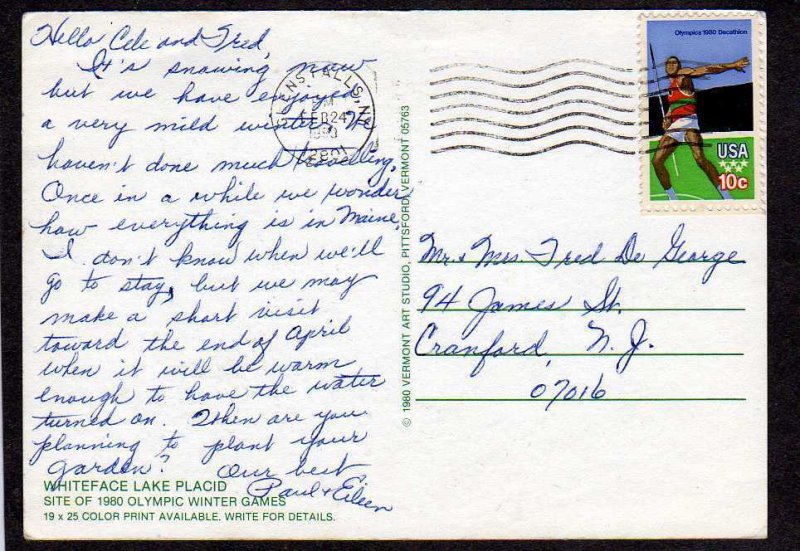 Hello Cele and Fred,
It's snowing now
but we have enjoyed
a very mild winter. We
haven't done much travelling.
Once in a while we wonder
how everything is in Maine.
I don't know when we'll
go to stay, but we may
make a short visit
toward the end of April
when it will be warm
enough to have the water
turned on. When are you
planning to plant your
garden? Our best
Paul & Eileen
WHITEFACE LAKE PLACID
SITE OF 1980 OLYMPIC WINTER GAMES
19 x 25 COLOR PRINT AVAILABLE. WRITE FOR DETAILS.
© 1980 VERMONT ART STUDIO, PITTSFORD, VERMONT 05763
FALLS, N.Y.
FEB 24
Olympics 1980 Decathlon
USA
10c
Mr. & Mrs. Fred De George
94 James St.
Cranford, N. J.
07016